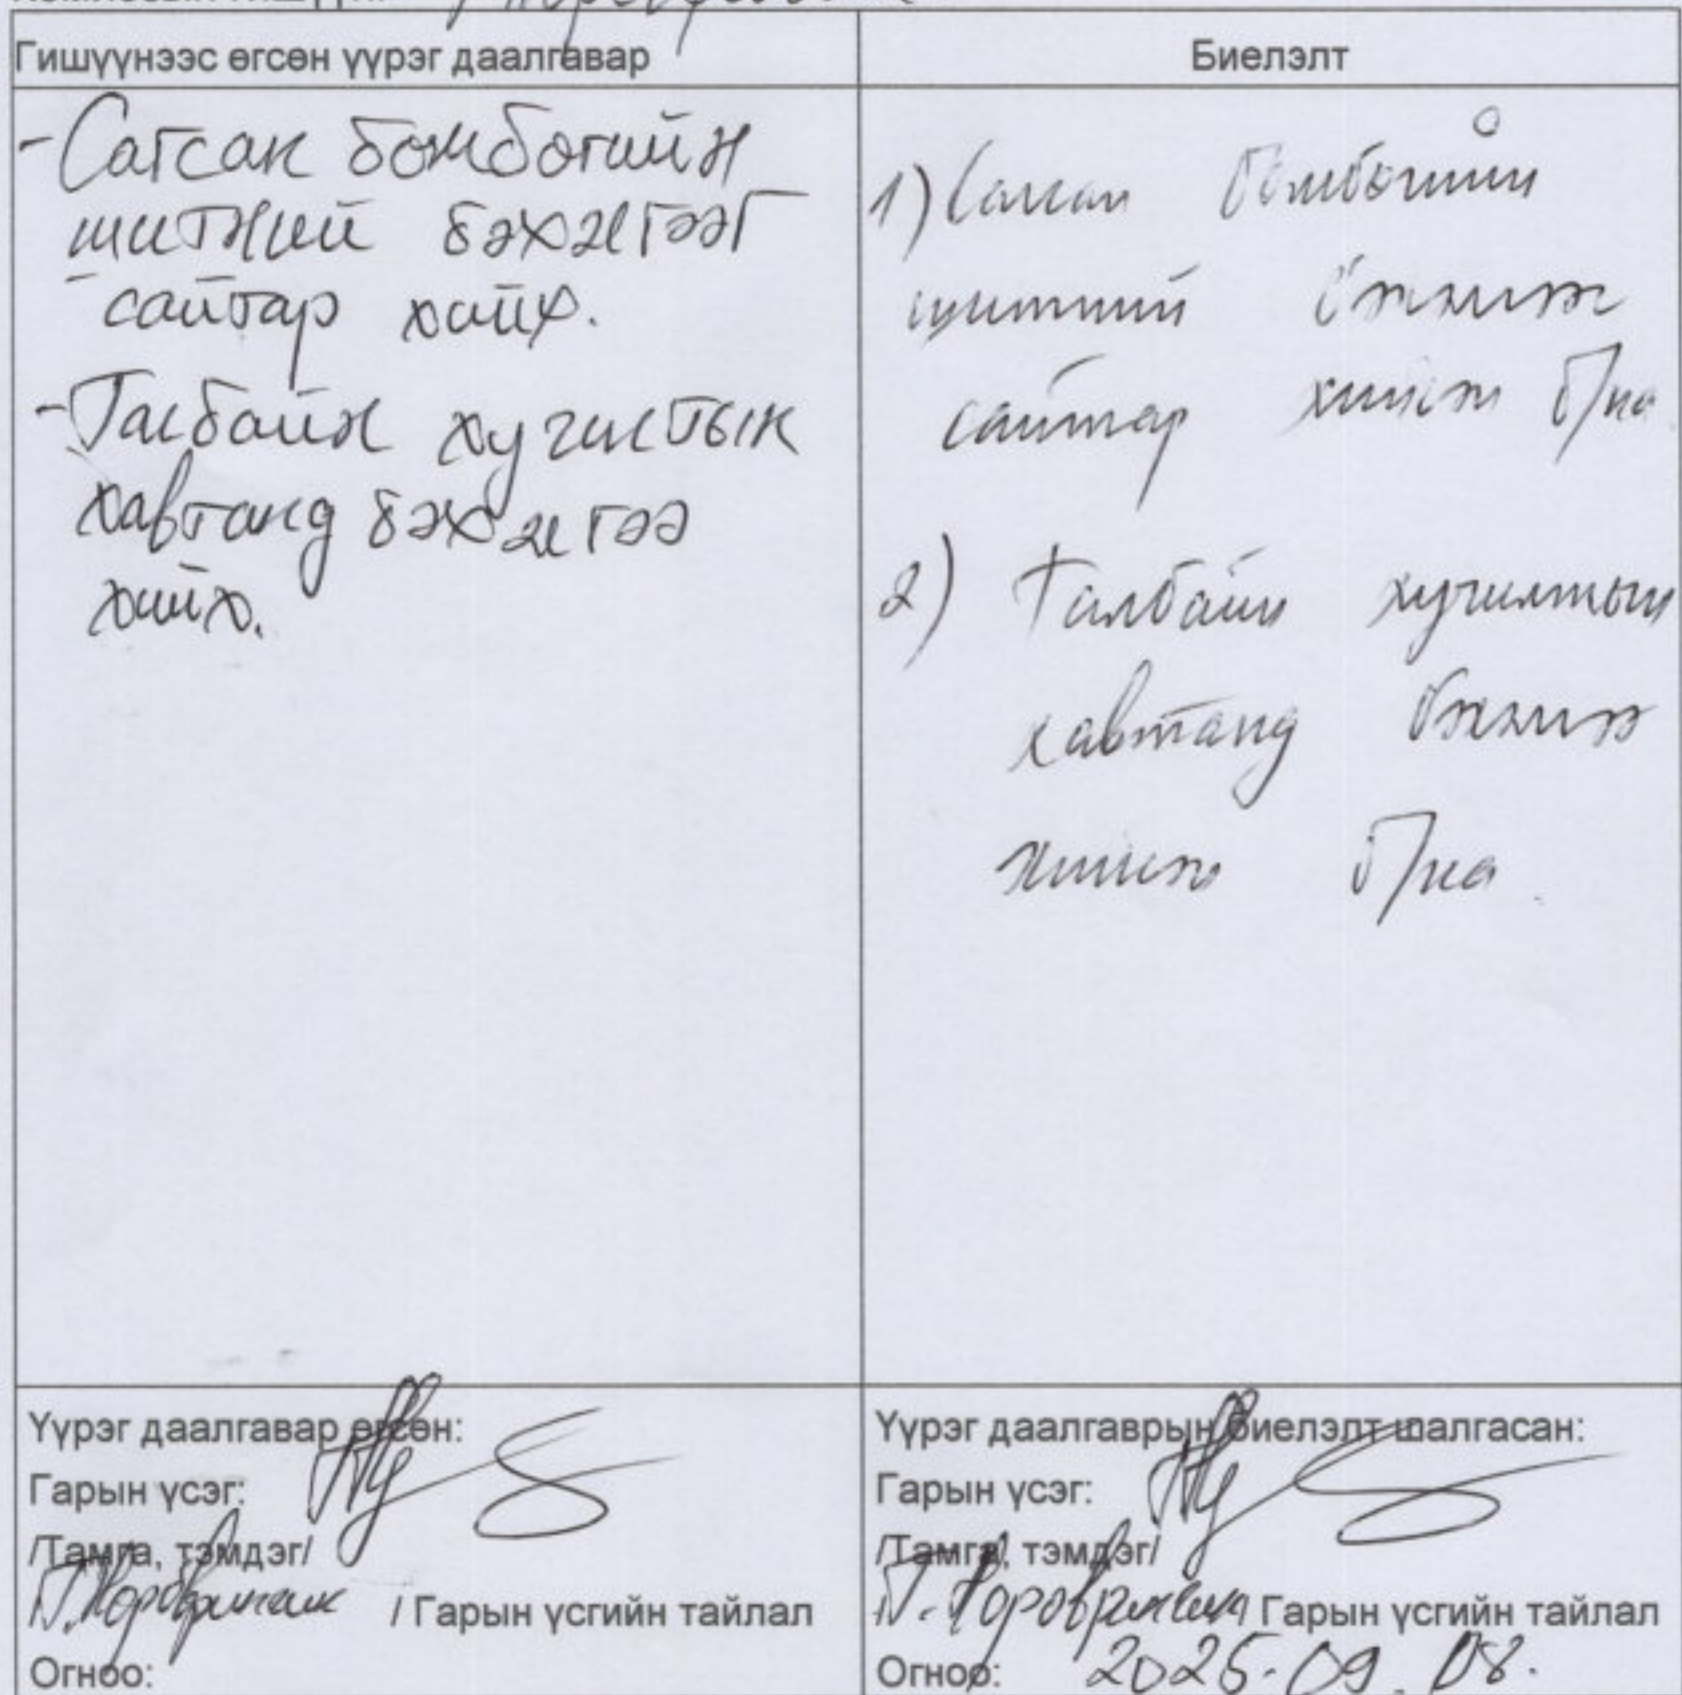 Гишүүнээс өгсөн үүрэг даалгавар
Биелэлт
- Сагсан бөмбөгийн
шитний бэхэлгээг
сайтар хийх.
- Талбайн хучилтын
хавтанд бэхэлгээ
хийх.
1) Сагсан бөмбөгийн
щитний бэхэлгээ
сайтар хийсэн б/на
2) Талбайн хучилтын
хавтанд бэхэлгээ
хийсэн б/на.
Үүрэг даалгавар өгсөн:
Гарын үсэг:
/Тамга, тэмдэг/
/ Гарын үсгийн тайлал
Огноо:
Үүрэг даалгаврын биелэлт шалгасан:
Гарын үсэг:
/Тамга, тэмдэг/
Гарын үсгийн тайлал
Огноо: 2025.09.08.